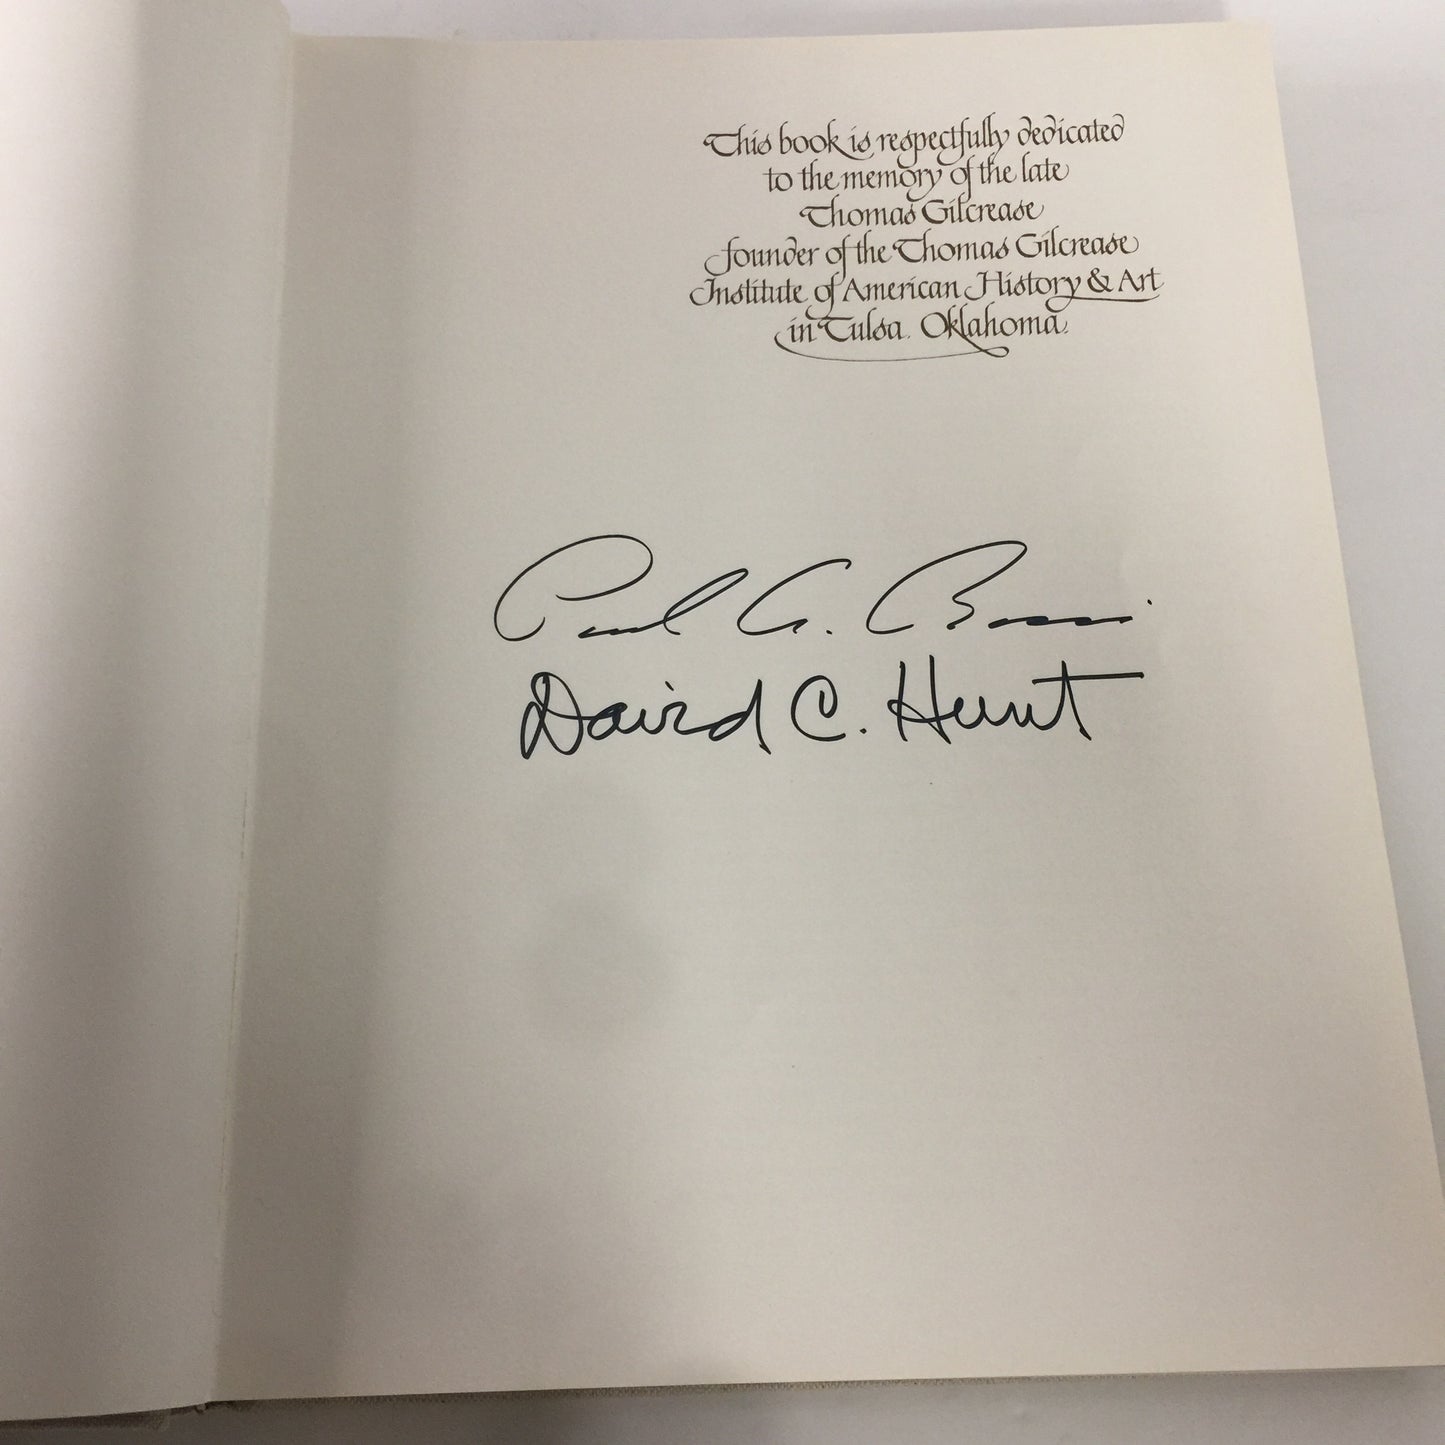 This book is respectfully dedicated
to the memory of the late
Thomas Gilcrease
founder of the Thomas Gilcrease
Institute of American History & Art
in Tulsa. Oklahoma.
Paul A. Rossi
David C. Hunt